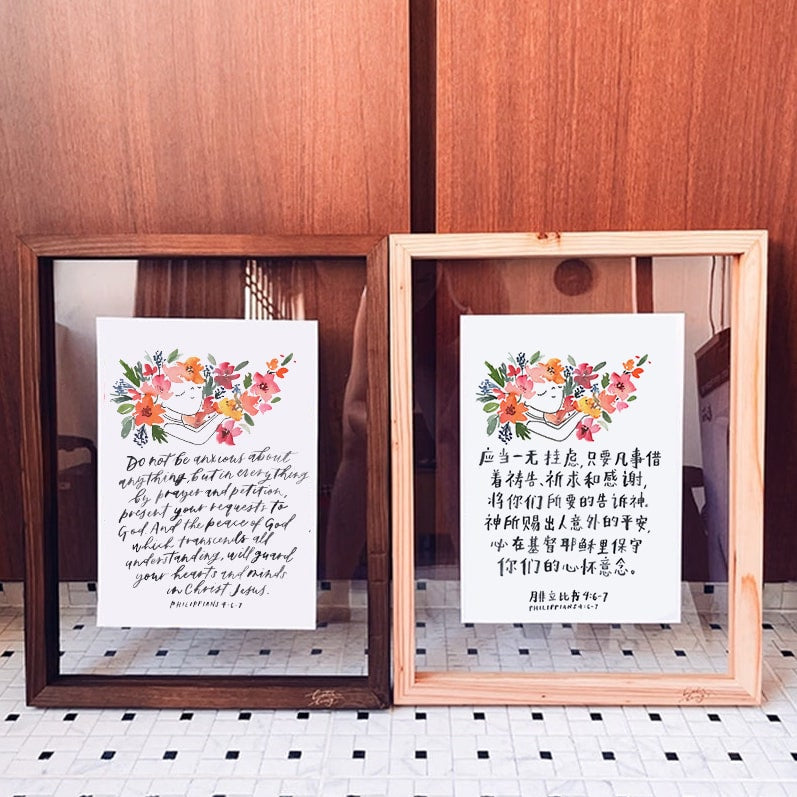 Do not be anxious about
anything, but in everything
by prayer and petition,
present your requests to
God. And the peace of God
which transcends all
understanding, will guard
your hearts and minds
in Christ Jesus.
PHILIPPIANS 4:6-7
应当一无挂虑,只要凡事借
着祷告、祈求和感谢,
将你们所要的告诉神。
神所赐出人意外的平安,
必在基督耶稣里保守
你们的心怀意念。
腓立比书 4:6-7
PHILIPPIANS 4:6-7